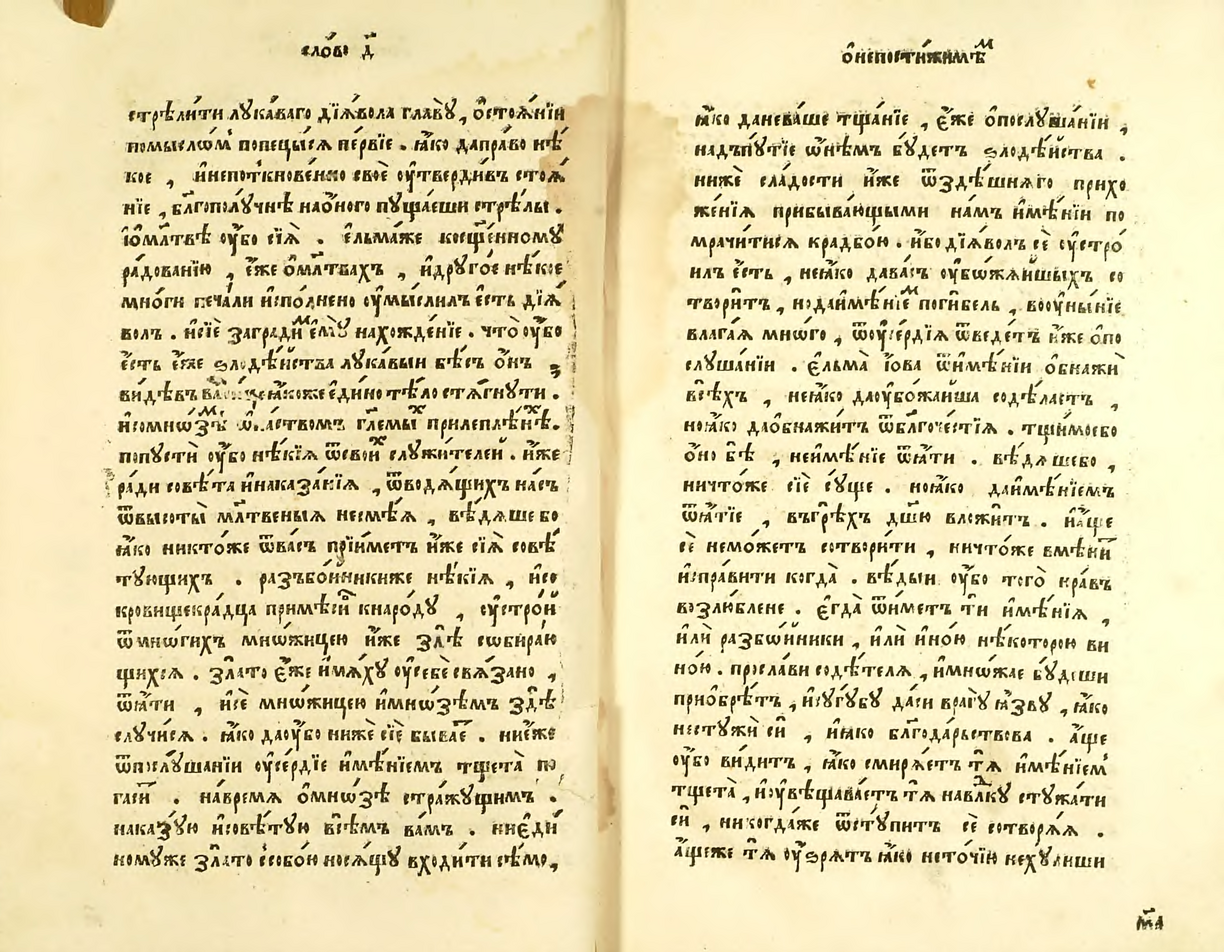 сло́во д҃
стрѣли́ти лꙋка́ваго дїѧ́вола главꙋ̀, ѻ҆стоѧ́нїи
помы́сломъ попецы́сѧ пе́рвїе . ꙗ҆́ко дапра́во нѣ́
кое , и҆непоткнове́нно своѐ ᲂу҆тверди́въ стоѧ́
нїе , бл҃гополꙋ́чнѣ наѻ҆́ного пꙋща́еши стрѣ́лы .
їѻ҆мл҃твѣ ᲂу҆́бо сїѧ̀ . є҆льма́же косще́нномꙋ
ра́дованїю , є҆́же ѻ҆мл҃твахъ , и҆дрꙋго́е нѣ́кое
мно́ги печа́ли и҆спо́лнено ᲂу҆мы́слилъ є҆́сть дїѧ́
волъ . и҆сїѐ загради́мъ є҆мꙋ̀ нахожде́нїе . что̀ ᲂу҆́бо
є҆́сть є҆́же ѕлодѣ́йства лꙋка́выи бѣ́съ ѻ҆́нъ ,
ви́дѣвъ ꙗ҆́коже є҆ди́но тѣ́ло стѧ́гнꙋти .
и҆сомно́зѣмъ гл҃емы́хъ прилепле́нїихъ.
попꙋстѝ ᲂу҆́бо нѣ́кїѧ ѿсвои́хъ слꙋжи́телей . и҆́же
ра́ди совѣ́та и҆наказа́нїѧ , ѿводѧ́щихъ на́съ
ѿвысоты̀ мл҃твеныѧ несмѣ́ѧ , вѣ́дѧше бо
ꙗ҆́ко никто́же ѿва́съ прїи́метъ и҆́же сїѧ̀ совѣ́
тꙋющихъ . разъбо́йникиже нѣ́кїѧ , и҆со
кро́вищекра́дца примѣсѝ кнаро́дꙋ , сᲂу҆стро́и
ѿмно́гихъ мно́жицею и҆́же здѣ̀ собира́ю
щихсѧ . зла́то є҆́же и҆мѧ́хꙋ ᲂу҆себѐ свѧ́зано ,
ѿѧ́ти , и҆сѐ мно́жицею и҆мно́зѣмъ здѣ̀
слꙋчи́сѧ . ꙗ҆́ко даᲂу҆́бо нижѐ сїѐ быва́етъ . ниє҆́же
ѿпослꙋ́шанїи ᲂу҆се́рдїе и҆мѣ́нїемъ тщета̀ по
гаси́тъ . навре́мѧ ѻ҆мно́зѣ стра́жꙋщимъ .
наказꙋ́ю и҆совѣ́тꙋю всѣ́мъ ва́мъ . ниє҆ди́
номꙋже зла́то ссобо́ю носѧ́щꙋ входи́ти сѣ́мо,
ѻ҆непостижи́мѣмъ
ꙗ҆́ко даневáше тща́нїе , є҆́же ѻ҆послꙋ́шанїи ,
надъпꙋ́тїе ѻ҆не́мъ бꙋ́детъ ѕлодѣ́йства .
нижѐ сла́дости и҆́же ѿздѣ́шнѧго прихо
же́нїѧ прибыва́ющыми на́мъ и҆мѣ́нїи по
мрачи́тисѧ крадбо́ю . и҆́бо дїѧ́волъ сѐ ᲂу҆стро́
илъ є҆́сть , неꙗ҆́ко дава́съ ᲂу҆бо́жаишыхъ со
твори́тъ , нодаи҆мѣ́нїемъ поги́бель , воᲂу҆ны́нїе
влага́ѧ мно́го , ѿᲂу҆се́рдїѧ ѿведе́тъ и҆́же ѻ҆по
слꙋ́шанїи . є҆льма̀ і҆́ова ѿи҆мѣ́нїи ѻ҆бнажѝ
всѣ́хъ , неꙗ҆́ко даᲂу҆бо́жайша содѣ́лаетъ ,
ноꙗ҆́ко даѻ҆бнажи́тъ ѿблагоче́стїѧ . тщи́моебо
ѻ҆но̀ бѣ̀ , неи҆мѣ́нїе ѿѧ́ти . вѣ́дѧшебо ,
ничто́же сїѐ сꙋ́ще . ноꙗ҆́ко даи҆мѣ́нїемъ
ѿѧ́тїе , въгрѣ́хъ дш҃ю вложи́тъ . и҆а҆́ще
сѐ немо́жетъ сотвори́ти , ничто́же вмѣни́тъ
и҆спра́вити когда̀ . вѣ́дыи ᲂу҆́бо того̀ нра́въ
возлю́блене . є҆гда̀ ѿи́метъ тѝ и҆мѣ́нїѧ ,
и҆лѝ разбо́йники , и҆лѝ и҆но́ю нѣ́которою ви
но́ю . просла́ви содѣ́телѧ , и҆мно́жае бꙋ́деши
приѻ҆брѣ́тъ , и҆сꙋгꙋ́бꙋ да́си врагꙋ̀ ꙗ҆́звꙋ , ꙗ҆́ко
нестꙋжѝ сѝ , и҆ꙗ҆́ко бл҃года́рьствова . а҆́ще
ᲂу҆́бо ви́дитъ , ꙗ҆́ко смирѧ́етъ тѧ̀ и҆мѣ́нїемъ
тщета̀ , и҆ᲂу҆вѣщава́етъ тѧ̀ навл҃кꙋ стꙋжа́ти
сѝ , никогда́же ѿстꙋ́питъ сѐ сотворѧ́ѧ .
а҆́щеже тѧ̀ ᲂу҆́зрѧтъ ꙗ҆́ко неточі́ю нехꙋ́лиши
м҃д